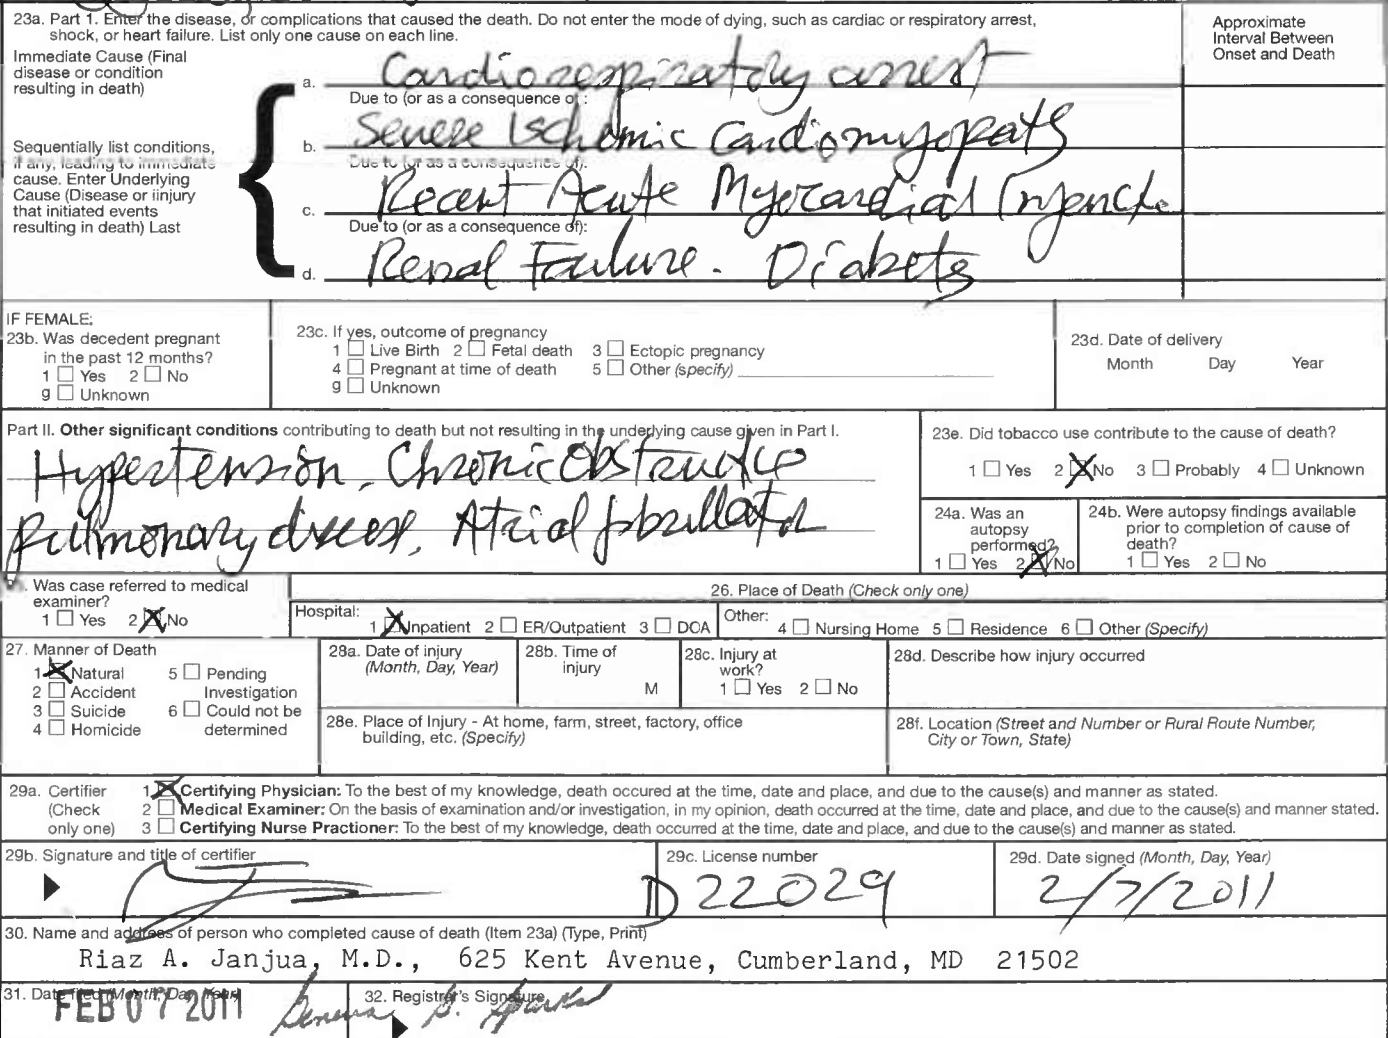 23a. Part 1. Enter the disease, or complications that caused the death. Do not enter the mode of dying, such as cardiac or respiratory arrest,
shock, or heart failure. List only one cause on each line.
Approximate
Interval Between
Onset and Death
Immediate Cause (Final
disease or condition
resulting in death)
a. Cardiorespiratory arrest
Due to (or as a consequence of):
Sequentially list conditions,
if any, leading to immediate
cause. Enter Underlying
Cause (Disease or iinjury
that initiated events
resulting in death) Last
b. Severe Ischemic Cardiomyopathy
Due to (or as a consequence of):
c. Recent Acute Myocardial
Due to (or as a consequence of):
d. Renal Failure. Diabetes
IF FEMALE:
23b. Was decedent pregnant
in the past 12 months?
1 ☐ Yes 2 ☐ No
9 ☐ Unknown
23c. If yes, outcome of pregnancy
1 ☐ Live Birth 2 ☐ Fetal death 3 ☐ Ectopic pregnancy
4 ☐ Pregnant at time of death 5 ☐ Other (specify)
9 ☐ Unknown
23d. Date of delivery
Month Day Year
Part II. Other significant conditions contributing to death but not resulting in the underlying cause given in Part I.
Hypertension, Chronic Obstructive
Pulmonary disease, Atrial fibrillation
23e. Did tobacco use contribute to the cause of death?
1 ☐ Yes 2 ☒ No 3 ☐ Probably 4 ☐ Unknown
24a. Was an
autopsy
performed?
1 ☐ Yes 2 ☒ No
24b. Were autopsy findings available
prior to completion of cause of
death?
1 ☐ Yes 2 ☐ No
Was case referred to medical
examiner?
1 ☐ Yes 2 ☒ No
26. Place of Death (Check only one)
Hospital: 1 ☒ Inpatient 2 ☐ ER/Outpatient 3 ☐ DOA Other: 4 ☐ Nursing Home 5 ☐ Residence 6 ☐ Other (Specify)
27. Manner of Death
1 ☒ Natural 5 ☐ Pending
2 ☐ Accident Investigation
3 ☐ Suicide 6 ☐ Could not be
4 ☐ Homicide determined
28a. Date of injury
(Month, Day, Year)
28b. Time of
injury
M
28c. Injury at
work?
1 ☐ Yes 2 ☐ No
28d. Describe how injury occurred
28e. Place of Injury - At home, farm, street, factory, office
building, etc. (Specify)
28f. Location (Street and Number or Rural Route Number,
City or Town, State)
29a. Certifier
(Check
only one)
1 ☒ Certifying Physician: To the best of my knowledge, death occured at the time, date and place, and due to the cause(s) and manner as stated.
2 ☐ Medical Examiner: On the basis of examination and/or investigation, in my opinion, death occurred at the time, date and place, and due to the cause(s) and manner stated.
3 ☐ Certifying Nurse Practioner: To the best of my knowledge, death occurred at the time, date and place, and due to the cause(s) and manner as stated.
29b. Signature and title of certifier
29c. License number
D22029
29d. Date signed (Month, Day, Year)
2/7/2011
30. Name and address of person who completed cause of death (Item 23a) (Type, Print)
Riaz A. Janjua, M.D., 625 Kent Avenue, Cumberland, MD 21502
31. Date filed (Month, Day, Year)
FEB 07 2011
32. Registrar's Signature